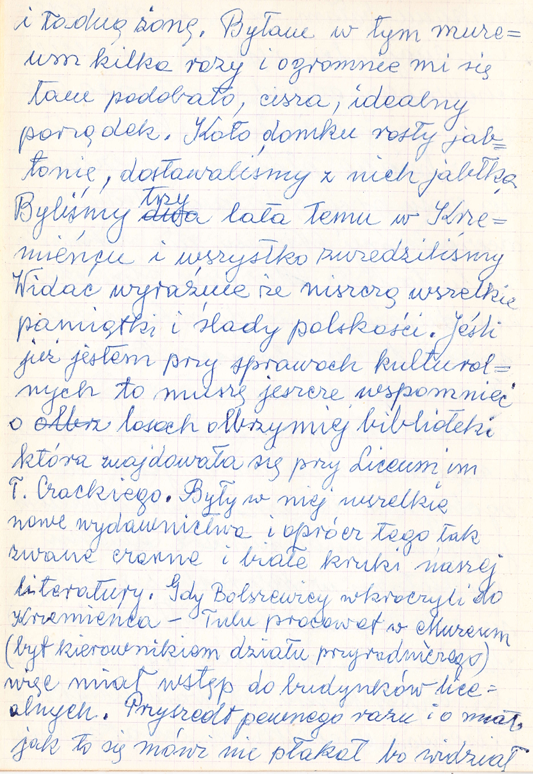 i ładną żonę. Byłam w tym muze=
um kilka razy i ogromnie mi się
tam podobało, cisza, idealny
porządek. Koło domku rosły jab=
łonie, dostawaliśmy z nich jabłka.
Byliśmy trzy dwa lata temu w Krze=
mieńcu i wszystko zwiedziliśmy
Widać wyraźnie że niszczą wszelkie
pamiątki i ślady polskości. Jeśli
już jestem przy sprawach kultural=
nych to muszę jeszcze wspomnieć
o olbrz losach olbrzymiej biblioteki
która znajdowała się przy Liceum im
T. Czackiego. Były w niej wszelkie
nowe wydawnictwa i oprócz tego tak
zwane czarne i białe kruki naszej
literatury. Gdy Bolszewicy wkroczyli do
Krzemieńca - Tulu pracował w Muzeum
(był kierownikiem działu przyrodniczego)
więc miał wstęp do budynków lice=
alnych. Przyszedł pewnego razu i o mało
jak to się mówi nie płakał bo widział